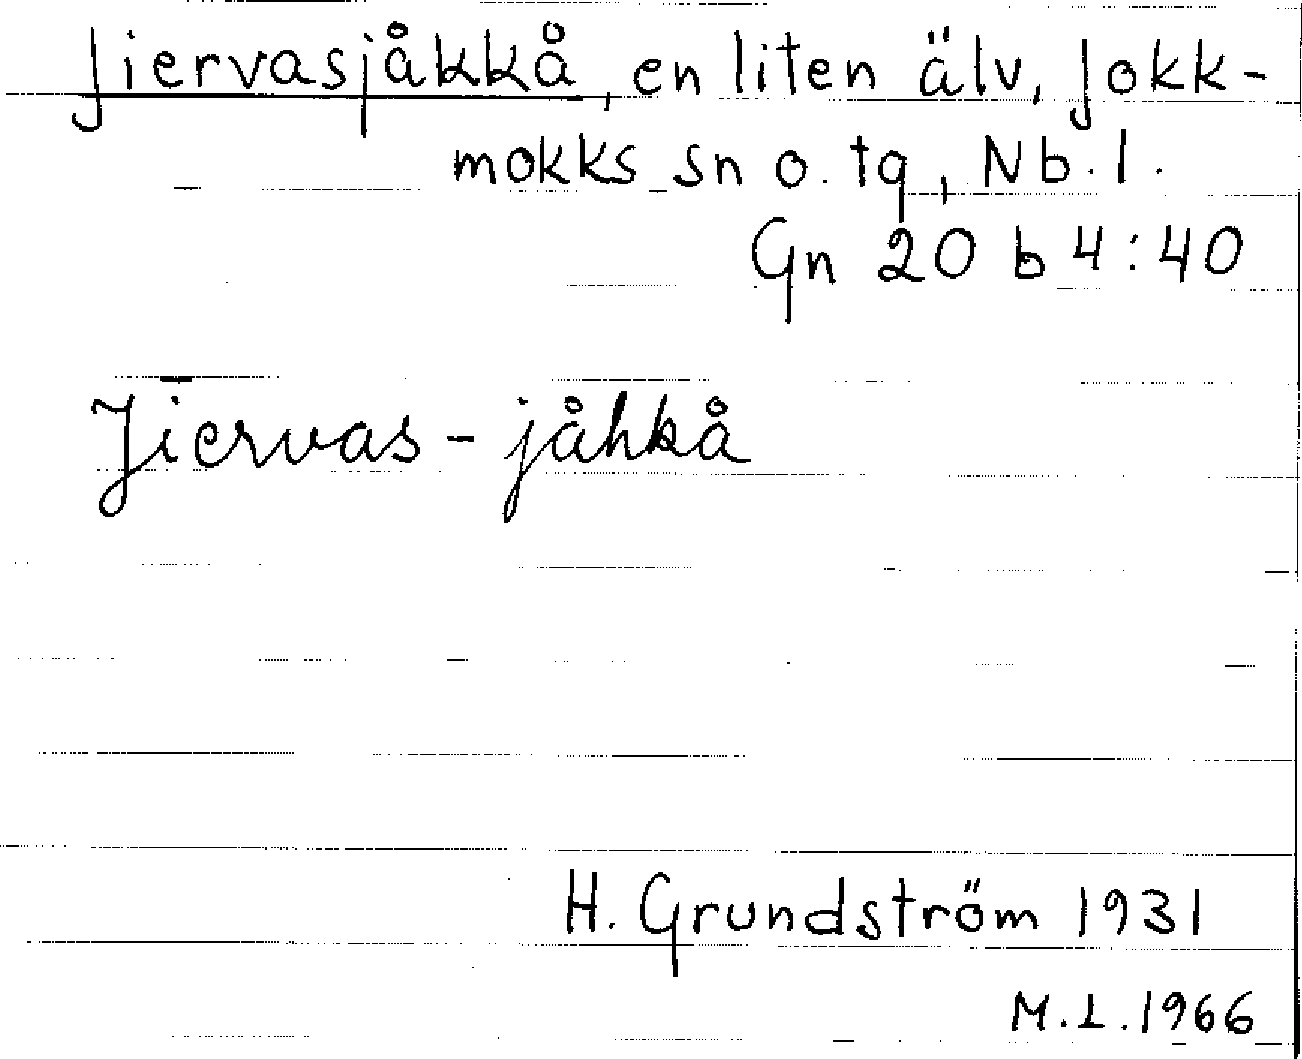 Jiervasjåkkå, en liten älv, Jokk-
mokks sn o. tg, Nb. l.
Gn 20 b 4:40
Jīervas-jåhkå
H. Grundström 1931
M.L.1966